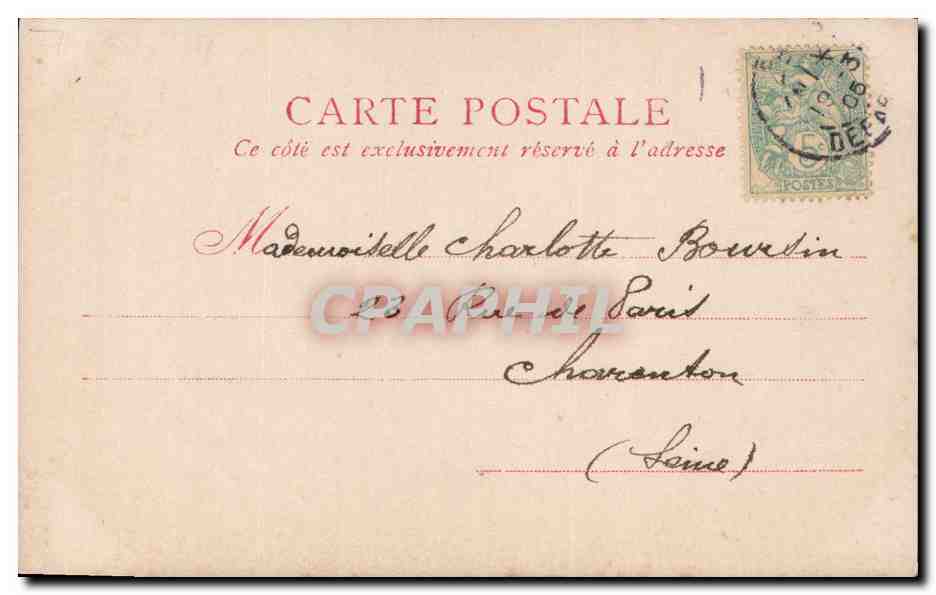 CARTE POSTALE
Ce côté est exclusivement réservé à l'adresse
5c
POSTES
05
DÉPART
Mademoiselle Charlotte Boursin
23 Rue de Paris
CPARHIL
Charenton
(Seine)